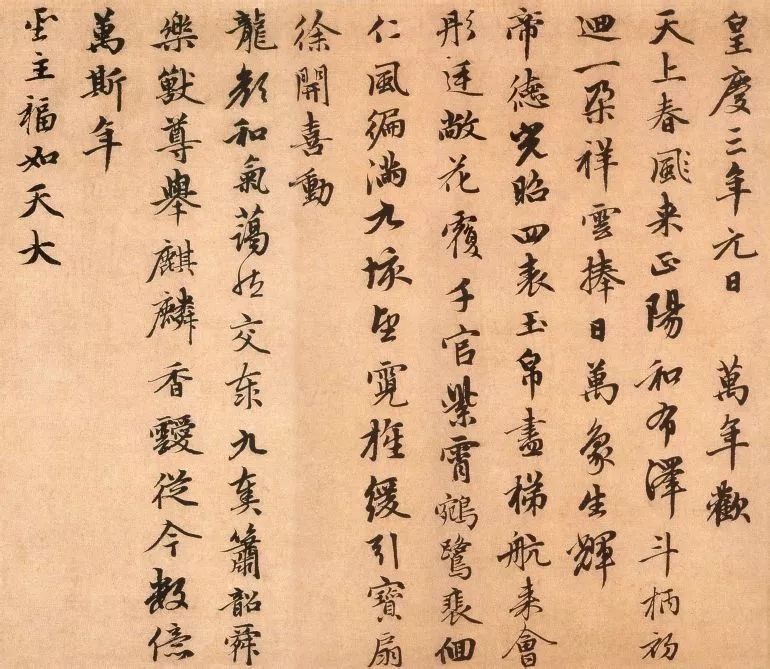 皇慶三年元日　萬年歡
天上春風来正陽和布澤斗柄初
迴一朶祥雲捧日萬象生輝
帝德光昭四表玉帛盡梯航来會
彤廷敞花覆千官紫霄鵷鷺裴佪
仁風徧滿九垓望霓旌緩引寶扇
徐開喜動
龍顏和氣藹然交泰九奏簫韶舜
樂獸尊舉麒麟香靉從今數億
萬斯年
聖主福如天大